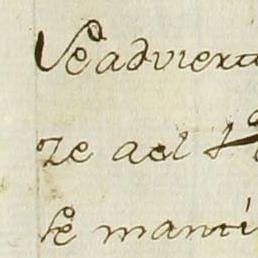 Se advierte
ze ael
se manti